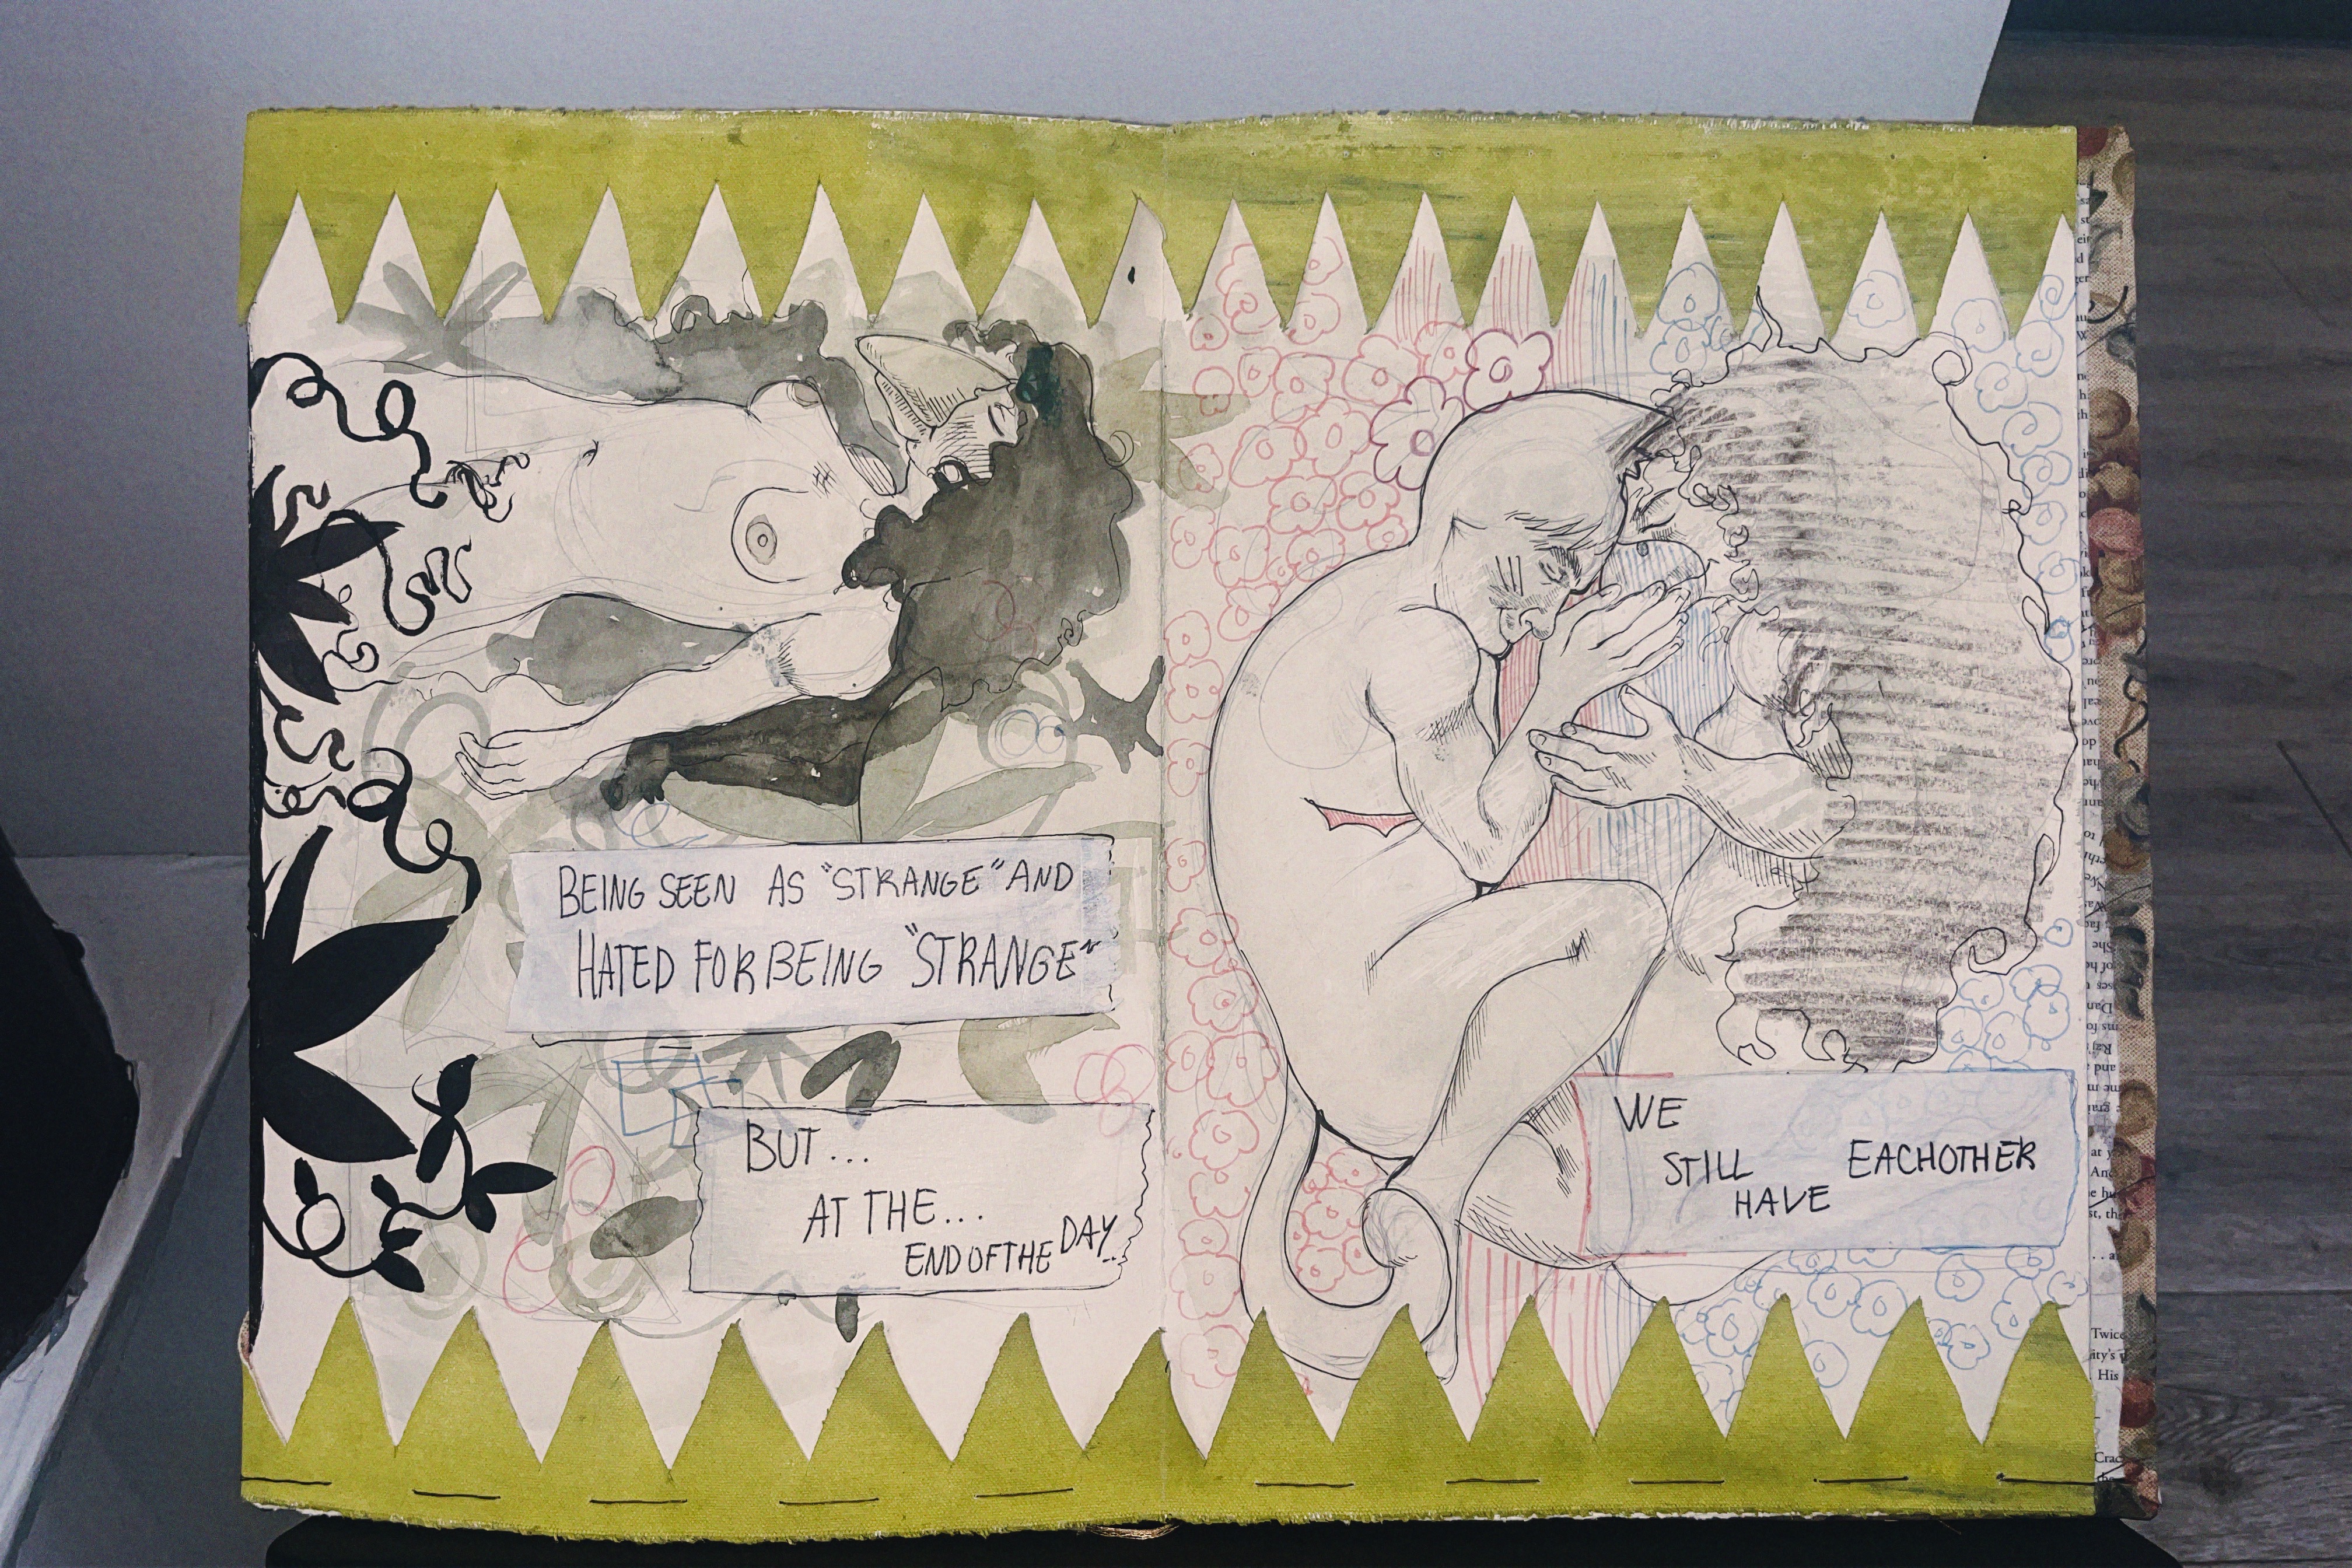 BEING SEEN AS "STRANGE" AND
HATED FOR BEING "STRANGE"
BUT...
AT THE...
END OF THE DAY...
WE
STILL
HAVE
EACHOTHER
Twice
ity's
His